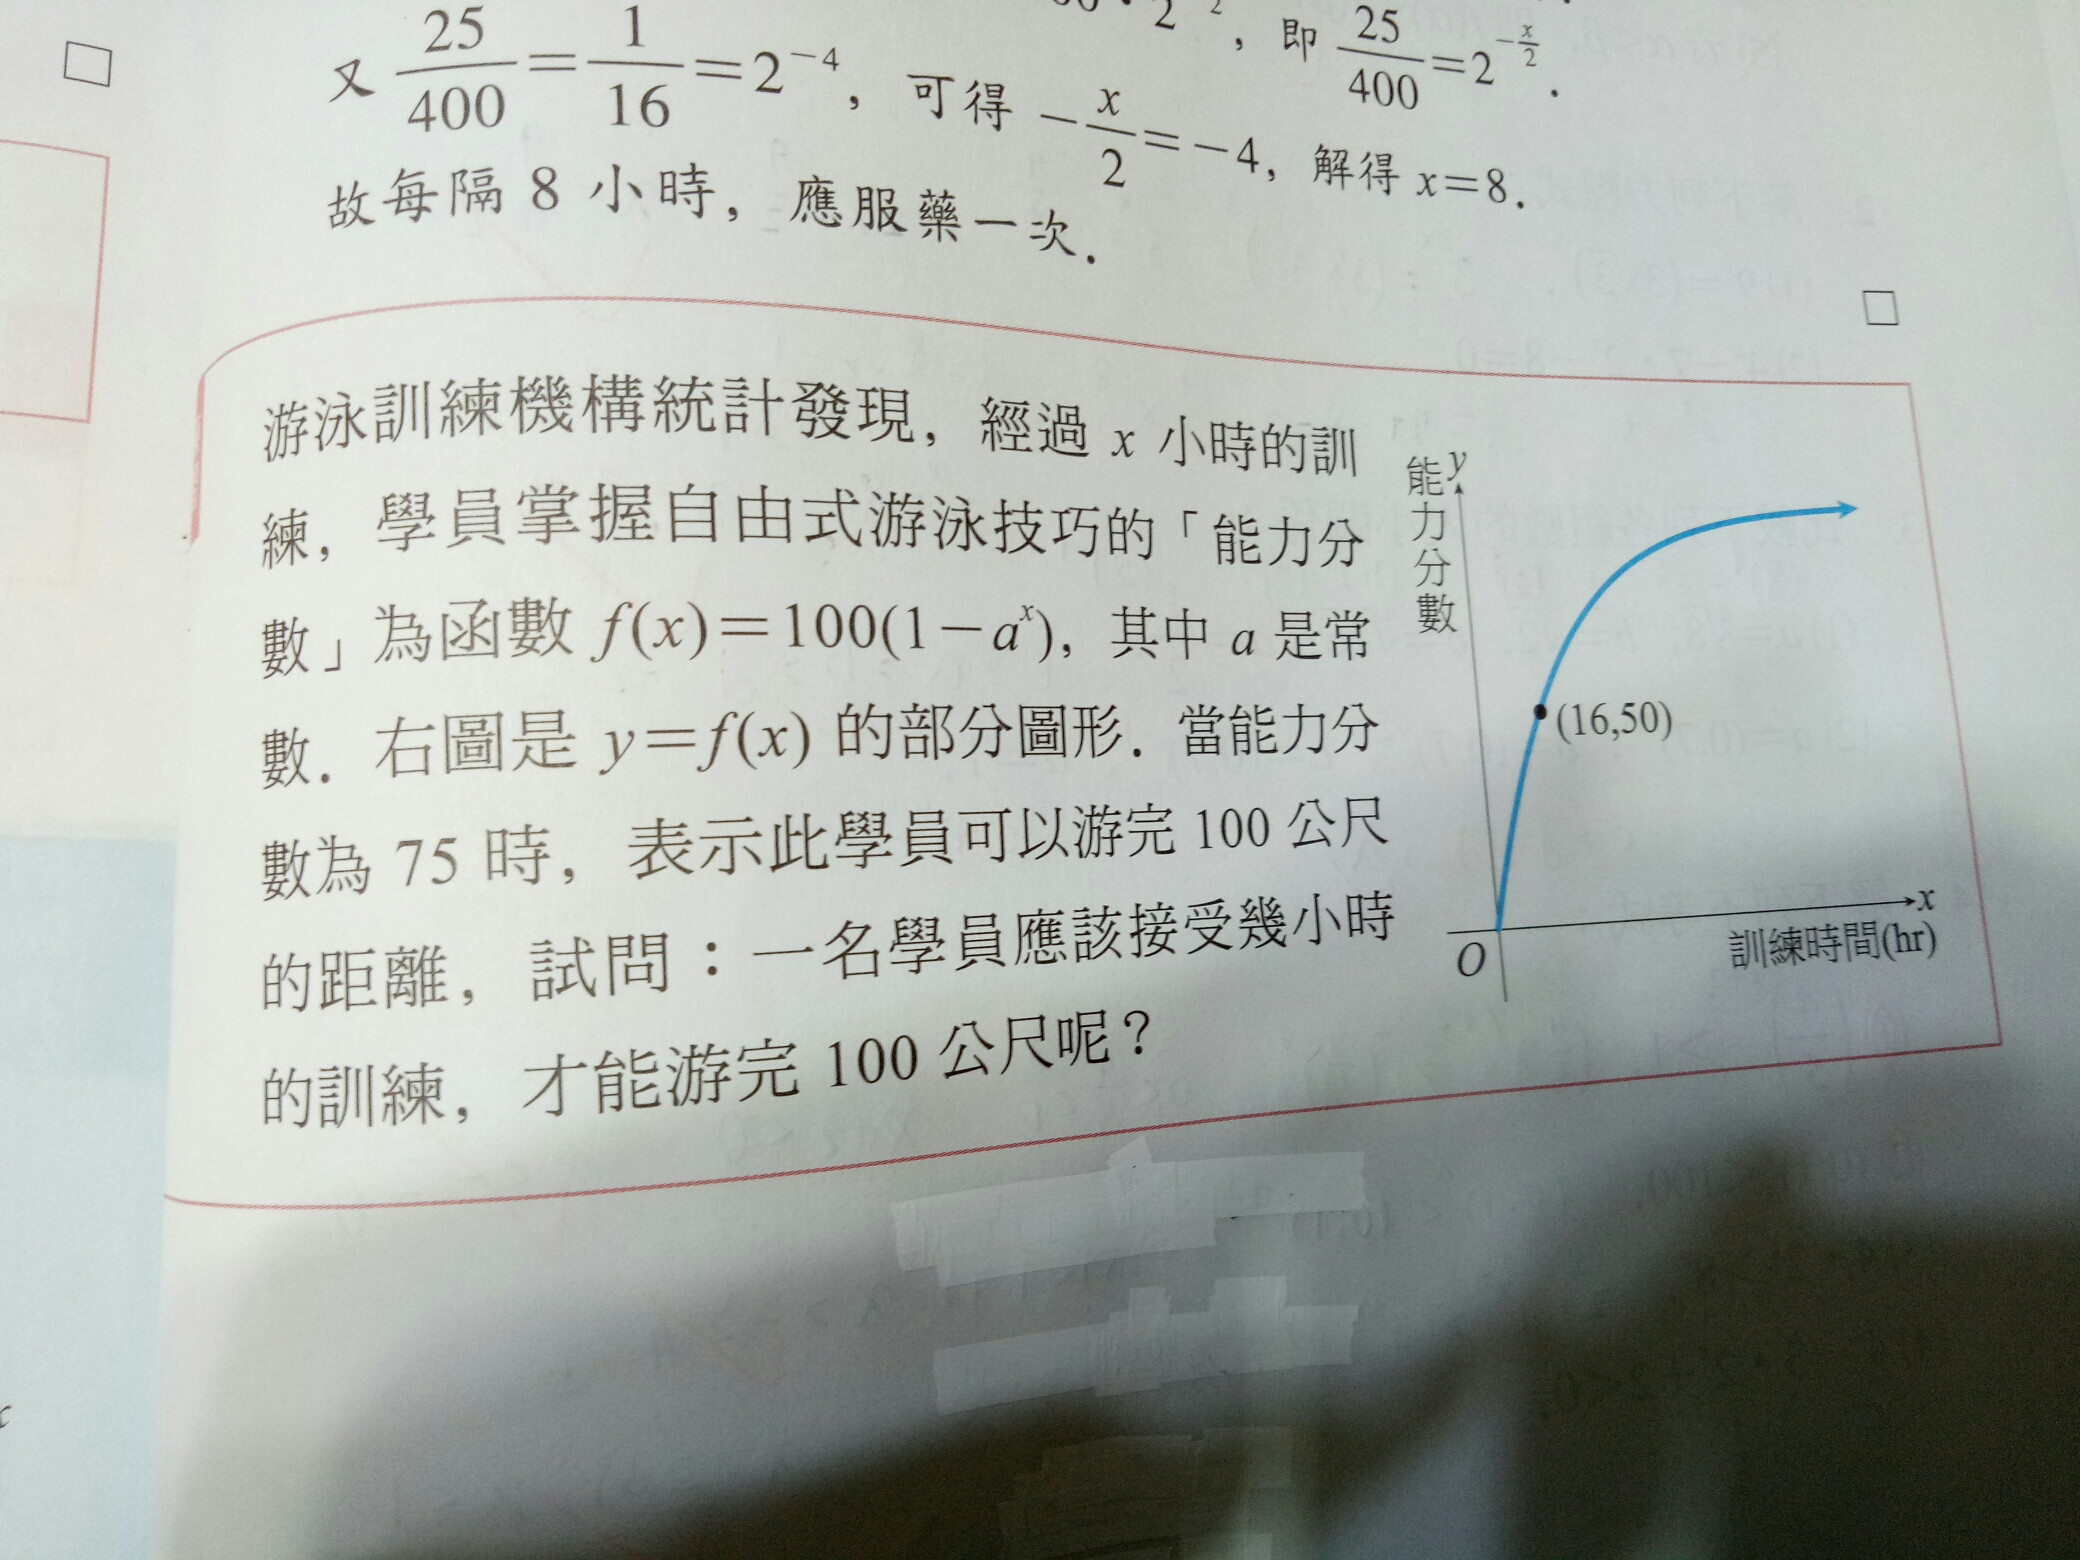 ，即 25/400=2^{-x/2}．
又 25/400=1/16=2^{-4}，可得 -x/2=-4，解得 x=8．
故每隔 8 小時，應服藥一次．
游泳訓練機構統計發現，經過 x 小時的訓
練，學員掌握自由式游泳技巧的「能力分
數」為函數 f(x)=100(1-a^x)，其中 a 是常
數．右圖是 y=f(x) 的部分圖形．當能力分
數為 75 時，表示此學員可以游完 100 公尺
的距離，試問：一名學員應該接受幾小時
的訓練，才能游完 100 公尺呢？
y
能力分數
(16,50)
x
O
訓練時間(hr)